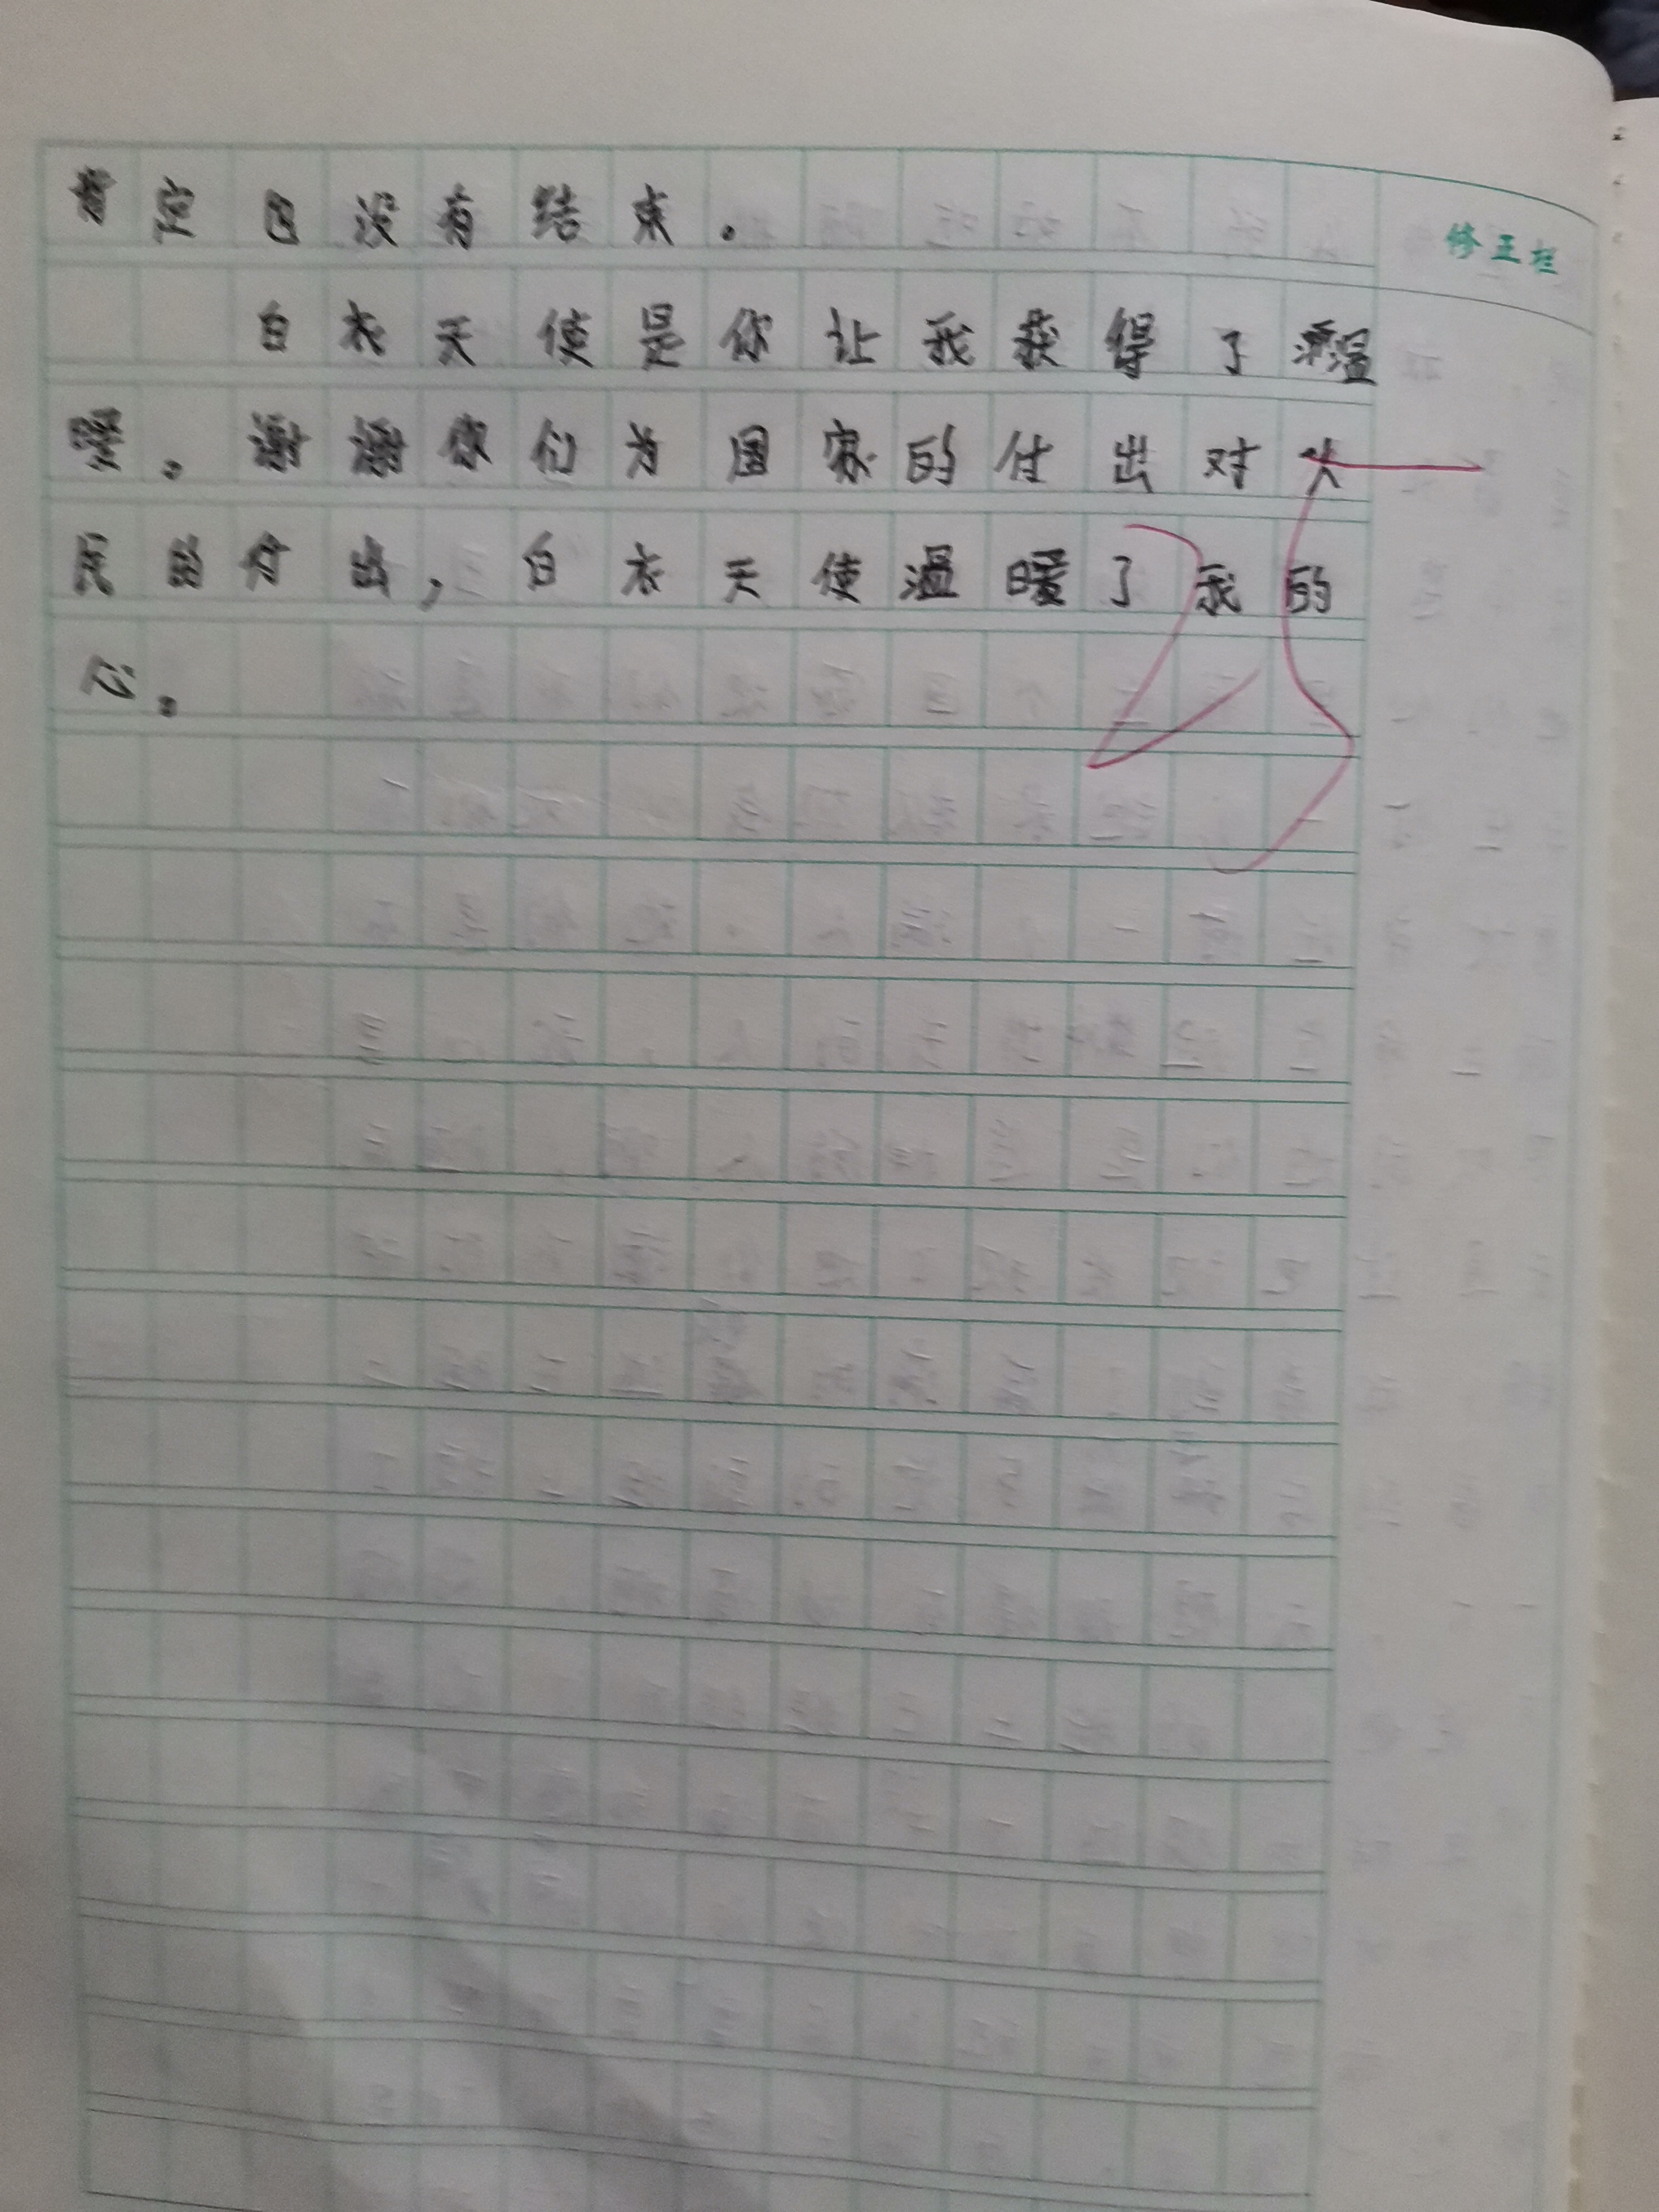 肯定也没有结束。
修正栏
白衣天使是你让我获得了温
暖。谢谢你们为国家的付出对人
民的付出，白衣天使温暖了我的
心。